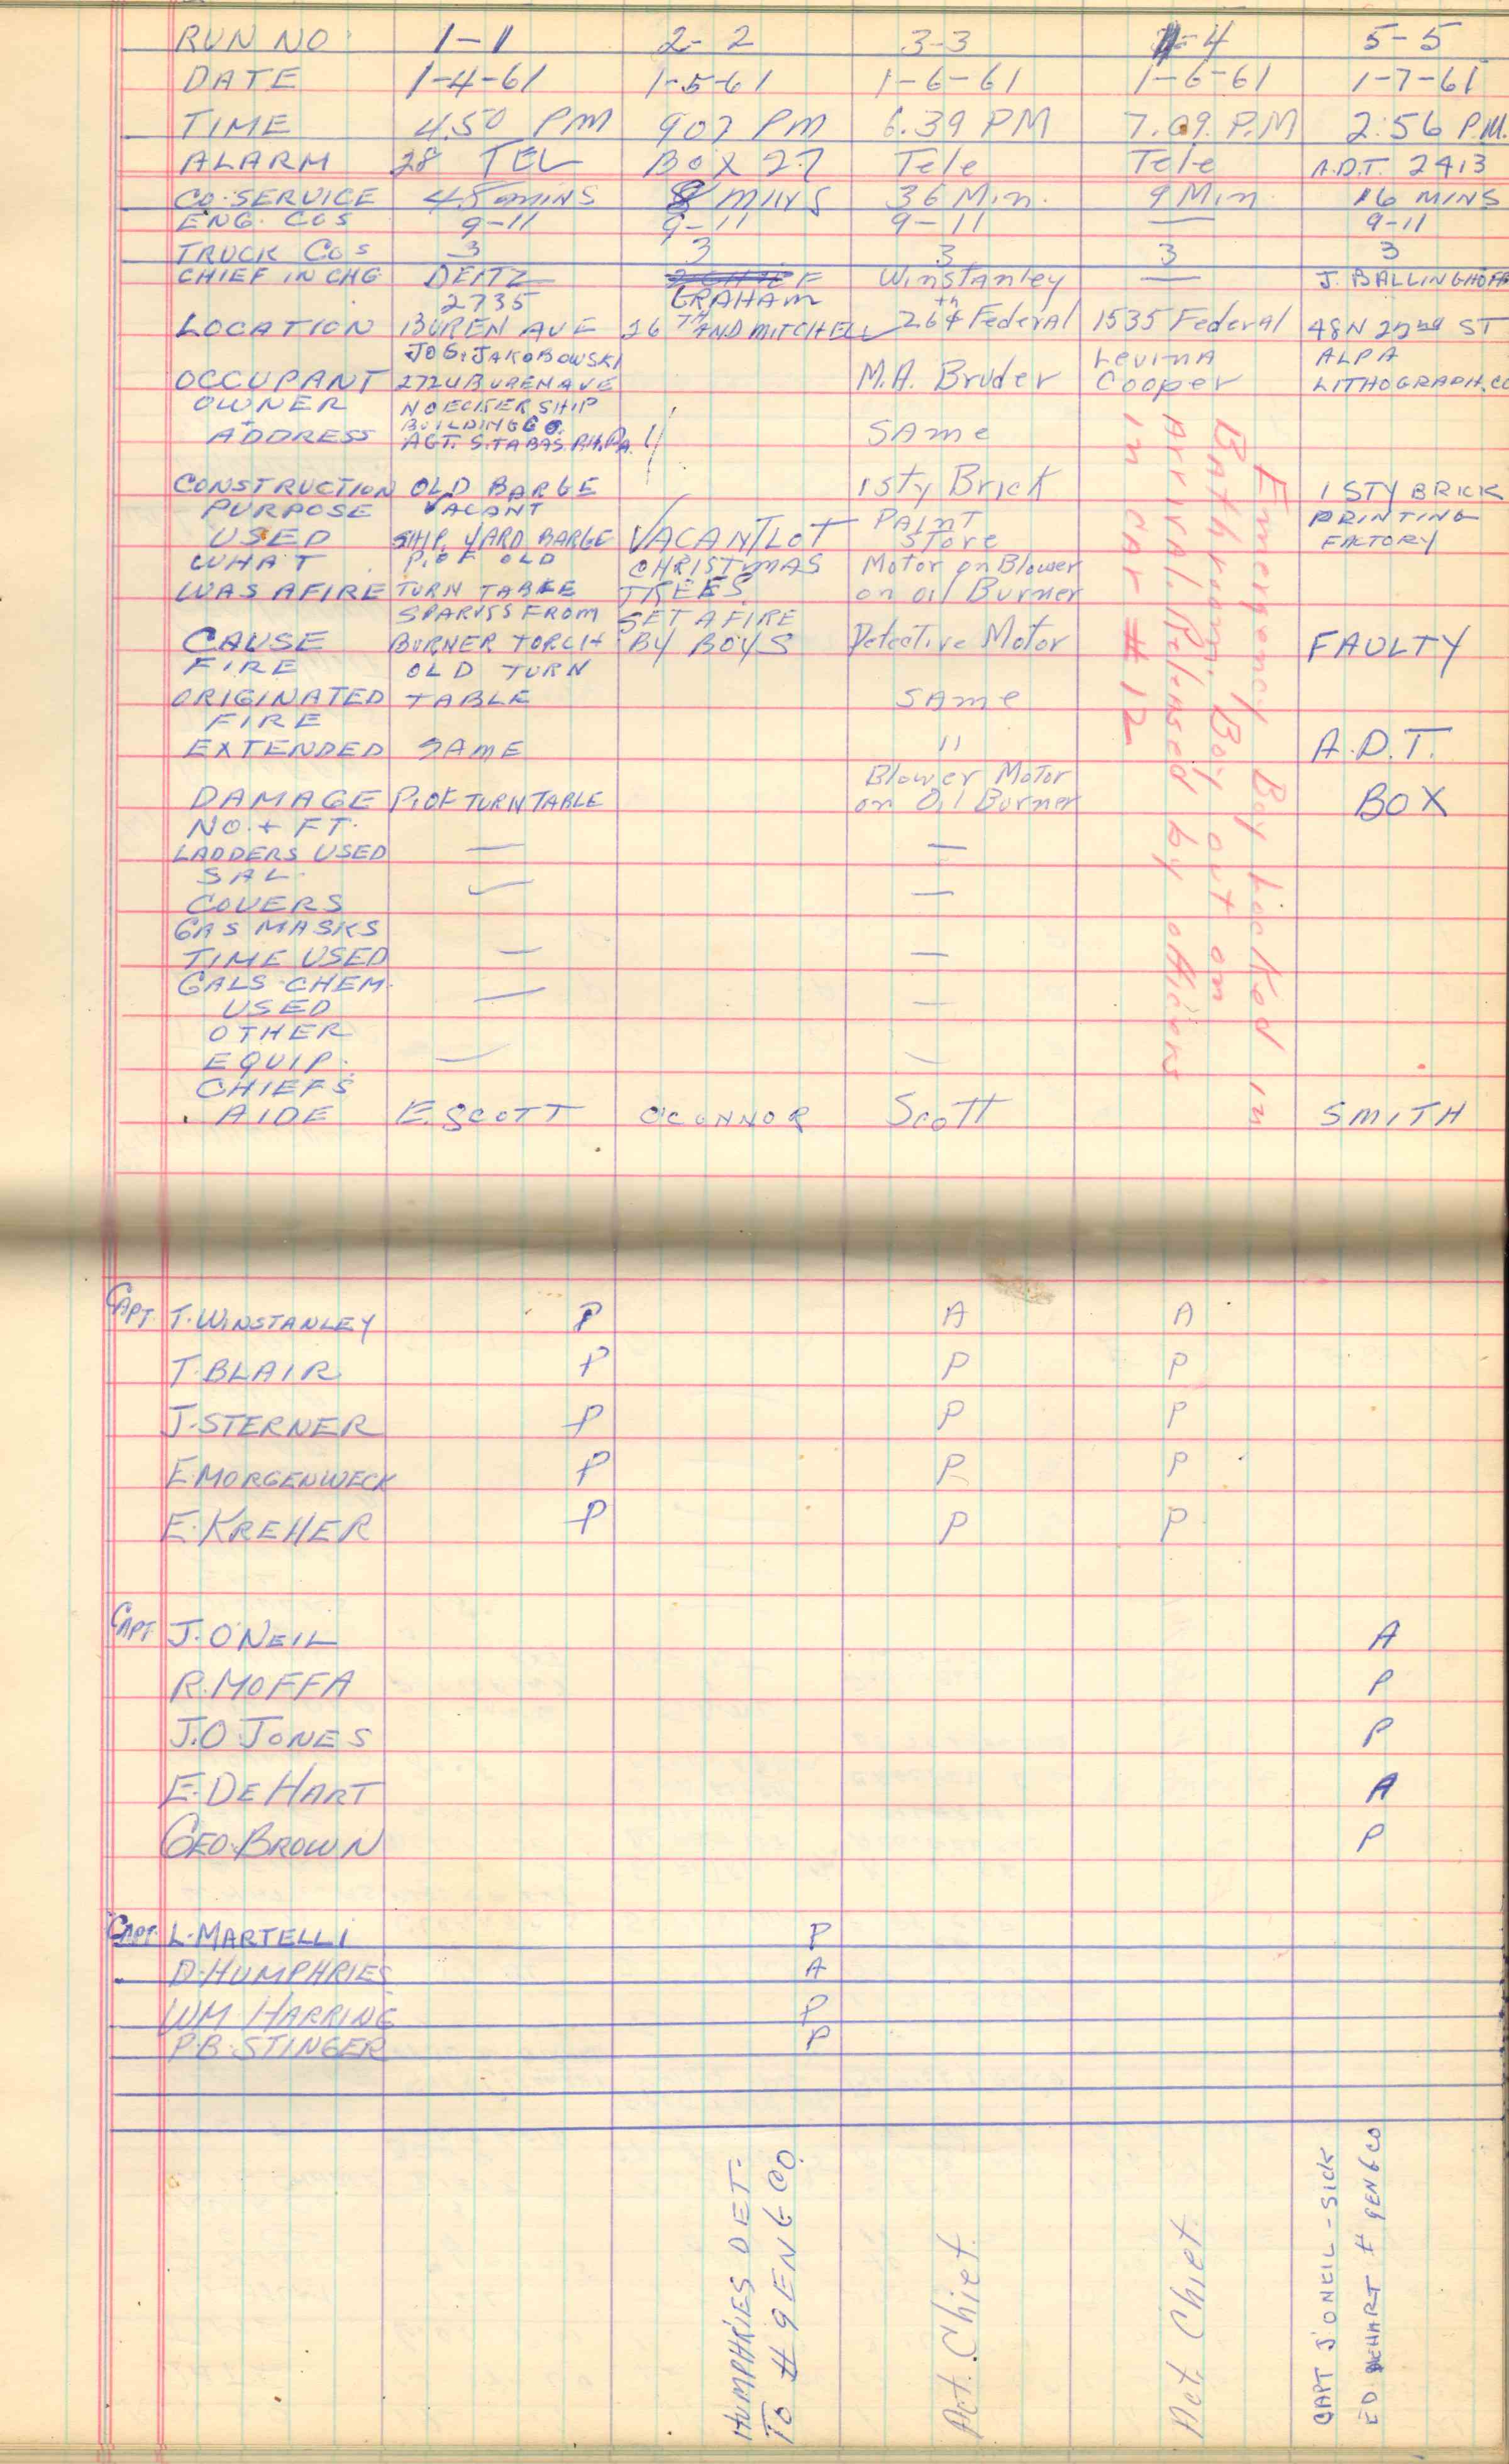 RUN NO. 1-1 2-2 3-3 4-4 5-5
DATE 1-4-61 1-5-61 1-6-61 1-6-61 1-7-61
TIME 4.50 PM 907 PM 6.39 PM 7.09. P.M 2:56 P.M.
ALARM 28 TEL BOX 27 Tele Tele A.D.T. 2413
CO. SERVICE 45 MINS 8 MINS 36 Min. 9 Min. 16 MINS
ENG. COS 9-11 9-11 9-11 — 9-11
TRUCK COS 3 3 3 3 3
CHIEF IN CHG DEITZ GRAHAM Winstanley — J. BALLINGHOFF
2735
LOCATION BUREN AVE 26TH AND MITCHELL 26th + Federal 1535 Federal 48 N 22nd ST
JOS. JAKOBOWSKI Levina ALPA
OCCUPANT 2724 BUREN AVE M.A. Bruder Cooper LITHOGRAPH. CO
OWNER NOECKER SHIP
+ BUILDING CO.
ADDRESS AGT. S. TABAS. PH. PA. SAme
CONSTRUCTION OLD BARGE 1 sty Brick 1 STY BRICK
PURPOSE VACANT PAINT PRINTING
USED SHIP YARD BARGE VACANT LOT Store FACTORY
WHAT P. OF OLD CHRISTMAS Motor on Blower
WAS AFIRE TURN TABLE TREES on oil Burner
SPARKS FROM SET AFIRE
CAUSE BURNER TORCH BY BOYS Defective Motor FAULTY
FIRE OLD TURN
ORIGINATED TABLE SAme
FIRE
EXTENDED SAME " A.D.T.
Blower Motor
DAMAGE P. OF TURN TABLE on Oil Burner BOX
NO. + FT.
LADDERS USED — —
SAL.
COVERS — —
GAS MASKS
TIME USED — —
GALS CHEM.
USED — —
OTHER
EQUIP. — —
CHIEFS
AIDE E. SCOTT OCONNOR Scott SMITH
Emergency Boy Locked in
Bathroom. Boy out on
Arrival. Released by others
in car # 12
CAPT. T. WINSTANLEY P A A
T. BLAIR P P P
J. STERNER P P P
E. MORGENWECK P P P
E. KREHER P P P
CAPT. J. O'NEIL A
R. MOFFA P
J.O. JONES P
E. DE HART A
GEO. BROWN P
CAPT. L. MARTELLI P
D. HUMPHRIES A
WM HARRING P
P.B. STINGER P
HUMPHRIES DET-
TO # 9 ENG CO.
Act. Chief.
Act. Chief.
CAPT J O'NEIL - SICK
ED DEHART # 9 ENG CO